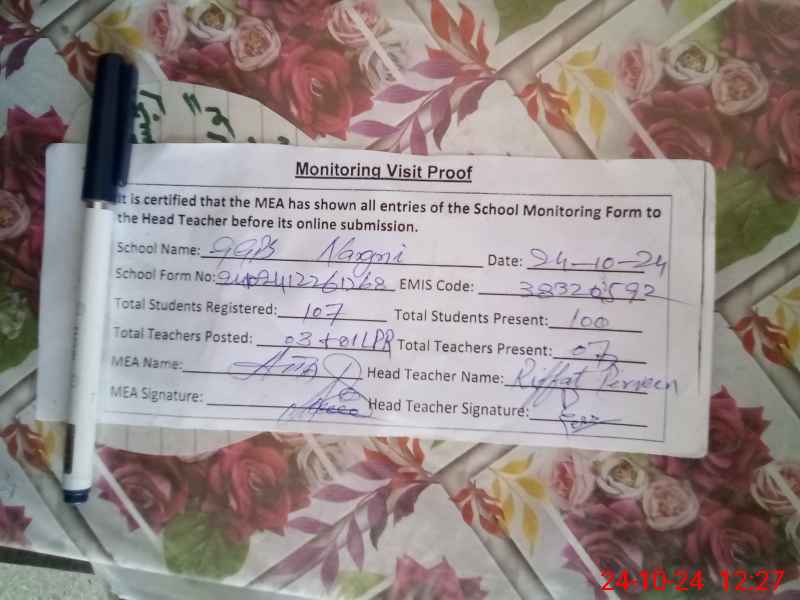 Monitoring Visit Proof
It is certified that the MEA has shown all entries of the School Monitoring Form to
the Head Teacher before its online submission.
School Name: GGPS Nargri Date: 24-10-24
School Form No: EMIS Code: 38320592
Total Students Registered: 107 Total Students Present: 100
Total Teachers Posted: 03 + 01 LPR Total Teachers Present:
MEA Name: Head Teacher Name: Riffat Perveen
MEA Signature: Head Teacher Signature:
24-10-24 12:27